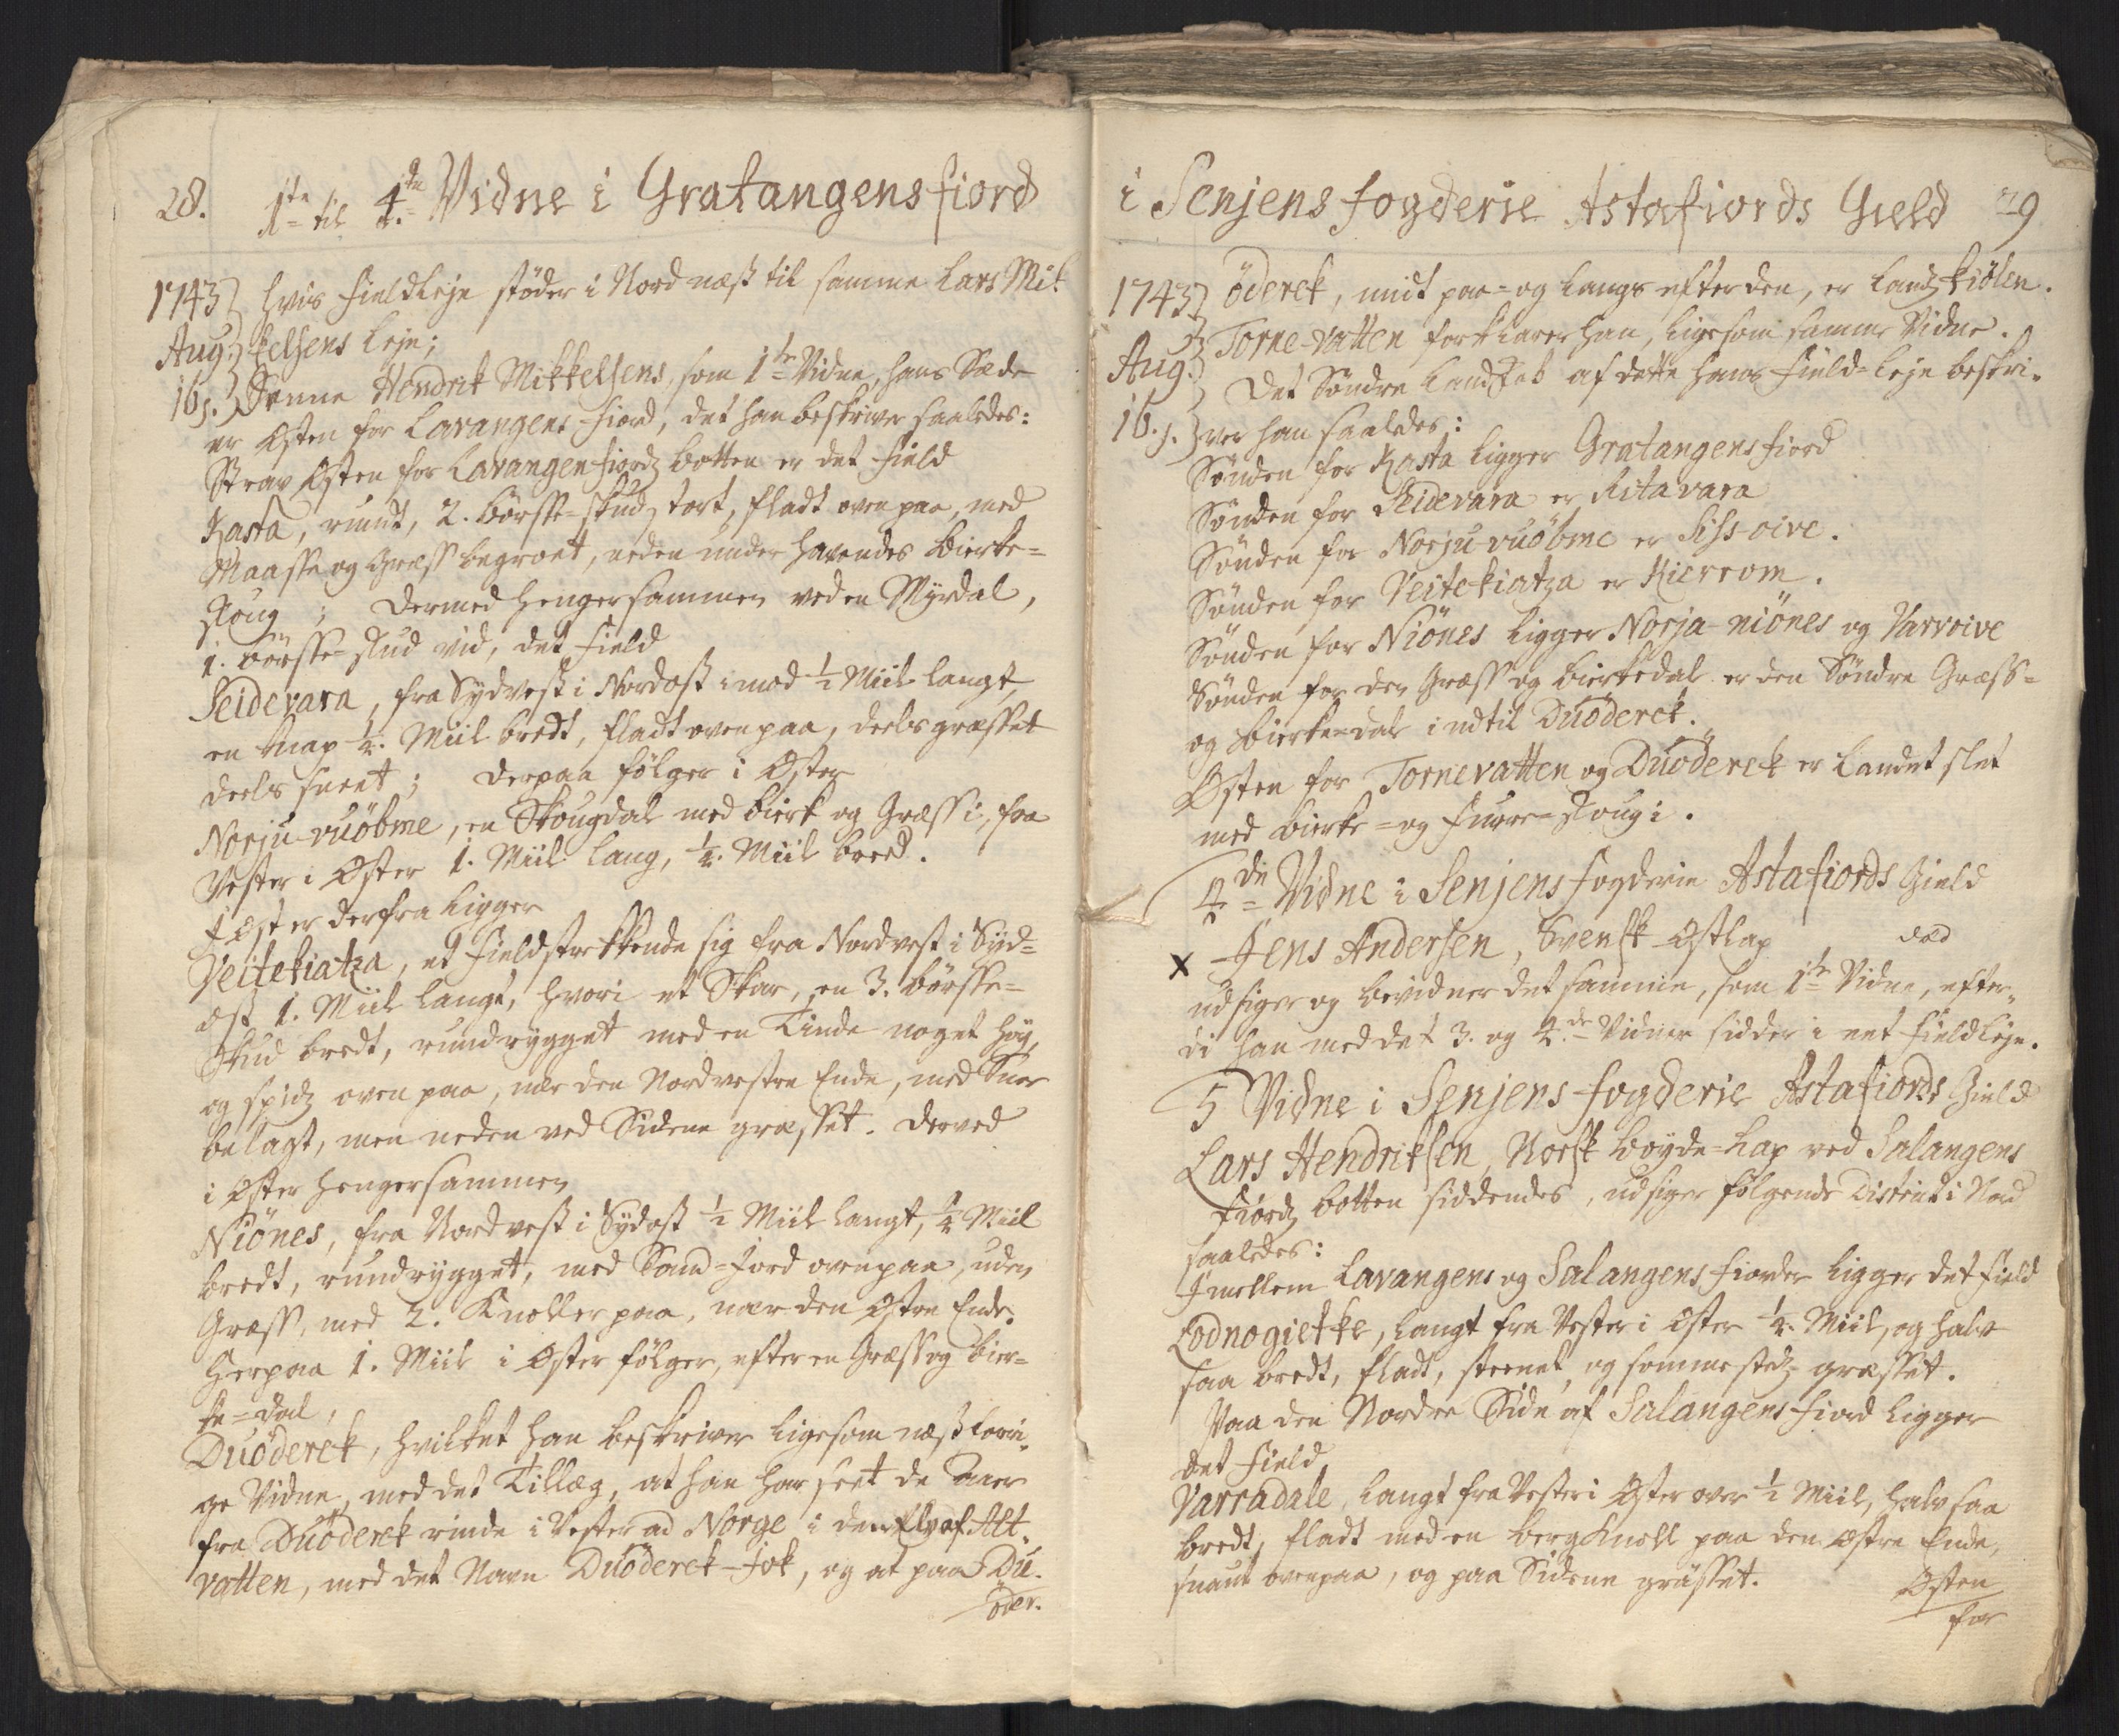 28. 1ste til 4de Vidne i Gratangensfiord
1743 hvis Fieldleje støder i Nord næst til samme Lars Mik
Aug. kelsens leje;
16. Denne Hendrik Mikkelsens, som 1te Vidne, hans Sæde
er Østen for Lavangens Fiord, det han beskriver saaledes:
Strax Østen for Lavangenfiordz botten er det Field
Kasta, rundt, 2. børsse-skudz stort, fladt oven paa, med
Maasse og Græss begroet, neden under havendes Bierke=
skoug; Dermed hengersammen ved en Myrdal,
1. børsse-skud vid, det Field
Seidevara, fra Sydvest i Nordost imod ½ Miil langt,
en knap ¼. Miil bredt, fladt oven paa, deels græsset
deels sneet; Derpaa følger i Øster
Norju-vuöbme, en Skougdal med birk og Græss i, fra
Vester i Øster 1. Miil lang, ¼. Miil breed.
I Øster derfra ligger
Veitekiatza, et Field strekkende sig fra Nordvest i Syd=
ost 1. Miil langt, hvori et Skar, en 3. børsse=
skud bredt, rundrygget med en Tinde noget høy,
og spidz oven paa, nær den Nordvestre Ende, med Snee
belagt, men neden ved Siderne græsset. Derved
i Øster hengersammen
Niönes, fra Nordvest i Sydost ½ Miil langt, ¼ Miil
bredt, rundrygget, med Sand-jord ovenpaa, uden
Græss, med 2. Knoller paa, nær den Østre Ende.
Herpaa 1. Miil i Øster følger, efter en Græss og bier=
ke=dal,
Duöderek, hvilket han beskriver ligesom næst forri=
ge Vidne, med det Tillæg, at han har seet de Aaer
fra Duöderek rinde i Vester ad Norge i den Elv af Alt-
vatten, med det Navn Duöderek-Jok, og at paa Du-
öder-
i Senjens fogderie Astafiords Gield 29
1743 öderek, midt paa= og langs efter den, er Landz kiölen.
Aug. Torne-vatten forklarer han, ligesom samme Vidne.
16. Det Søndre Landskab af dette hans Field-leje beskri=
ver han saaledes:
Sønden for Kasta ligger Gratangensfiord
Sønden for Seidevara er Ritavara
Sønden for Norju-vuöbme er Siss-oive.
Sønden for Veitekiatza er Kierrom.
Sønden for Niönes ligger Norja-niönes og Varvoive
Sønden for den Græss og bierkedal er den Søndre Græss=
og bierke-dal indtil Duöderek.
Østen for Tornevatten og Duöderek er landet slet
med bierke= og Furre=skoug i.
4de Vidne i Senjens fogderie Astafiords Gield
x Jens Andersen, Svensk Østlap, død
udsiger og bevidner det samme, som 1te Vidne, efter=
di han med det 3. og 4.de Vidner sidder i eet Fieldleje.
5 Vidne i Senjens fogderie Astafiords Gield
Lars Hendriksen, Norsk Bøyde=Lap ved Salangens
fiordz botten siddendes, udsiger følgende District i Nord
saaledes:
Imellem Lavangens og Salangens fiorder ligger det Field
Lodnogiekke, langt fra Vester i Øster ¼. Miil, og halv
saa bredt, fladt, steenet, og somme stedz græsset.
Paa den Nordre Side af Salangens fiord ligger
det Field
Varradale, langt fra Vester i Øster over ½ Miil, halv saa
bredt, fladt med en bergknoll paa den Østre Ende,
snaut ovenpaa, og paa Siderne græsset.
Østen
for